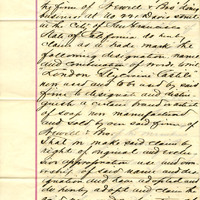 by firm of Newell & Bro. doing
business at No 221 Davis street
in the City of San Francisco
State of California do hereby
claim as a trade mark the
following designation name
and combination of words to wit
London Glycerine Castile
now used and to be used by said
firm to designate and distin-
guish a certain brand or article
of soap now manufactured
and sold by our said firm of
Newell & Bro
That we make said claim by
right of original and exclu-
sive appropriation use and own
ership of said name and des-
ignation and have adopted and
do hereby adopt and claim the